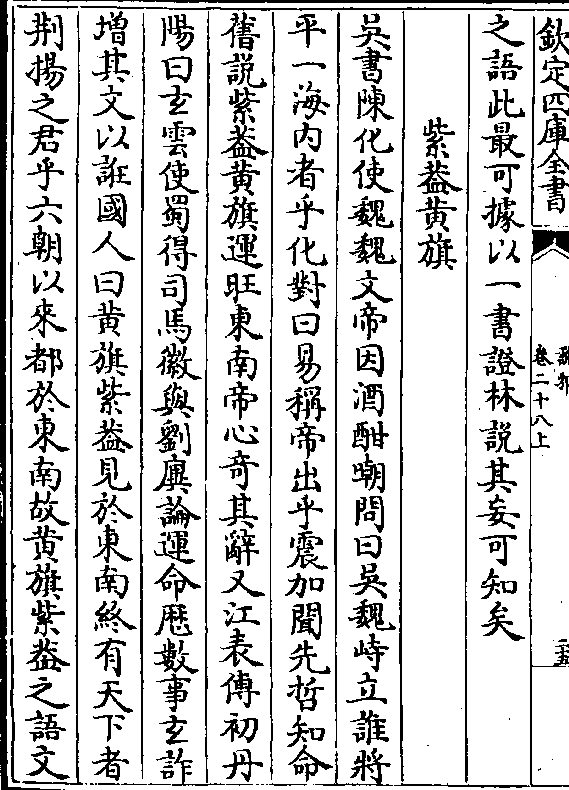 欽定四庫全書
說郛
卷二十八上
二五
之語此最可據以一書證林説其妄可知矣
紫葢黄旗
吳書陳化使魏魏文帝因酒酣嘲問曰吳魏峙立誰將
平一海内者乎化對曰易稱帝出乎震加聞先哲知命
舊説紫葢黄旗運旺東南帝心奇其辭又江表傳初丹
陽曰玄雲使蜀得司馬徽與劉廙論運命厯數事玄詐
增其文以誑國人曰黄旗紫葢見於東南終有天下者
荆揚之君乎六朝以來都於東南故黄旗紫葢之語文